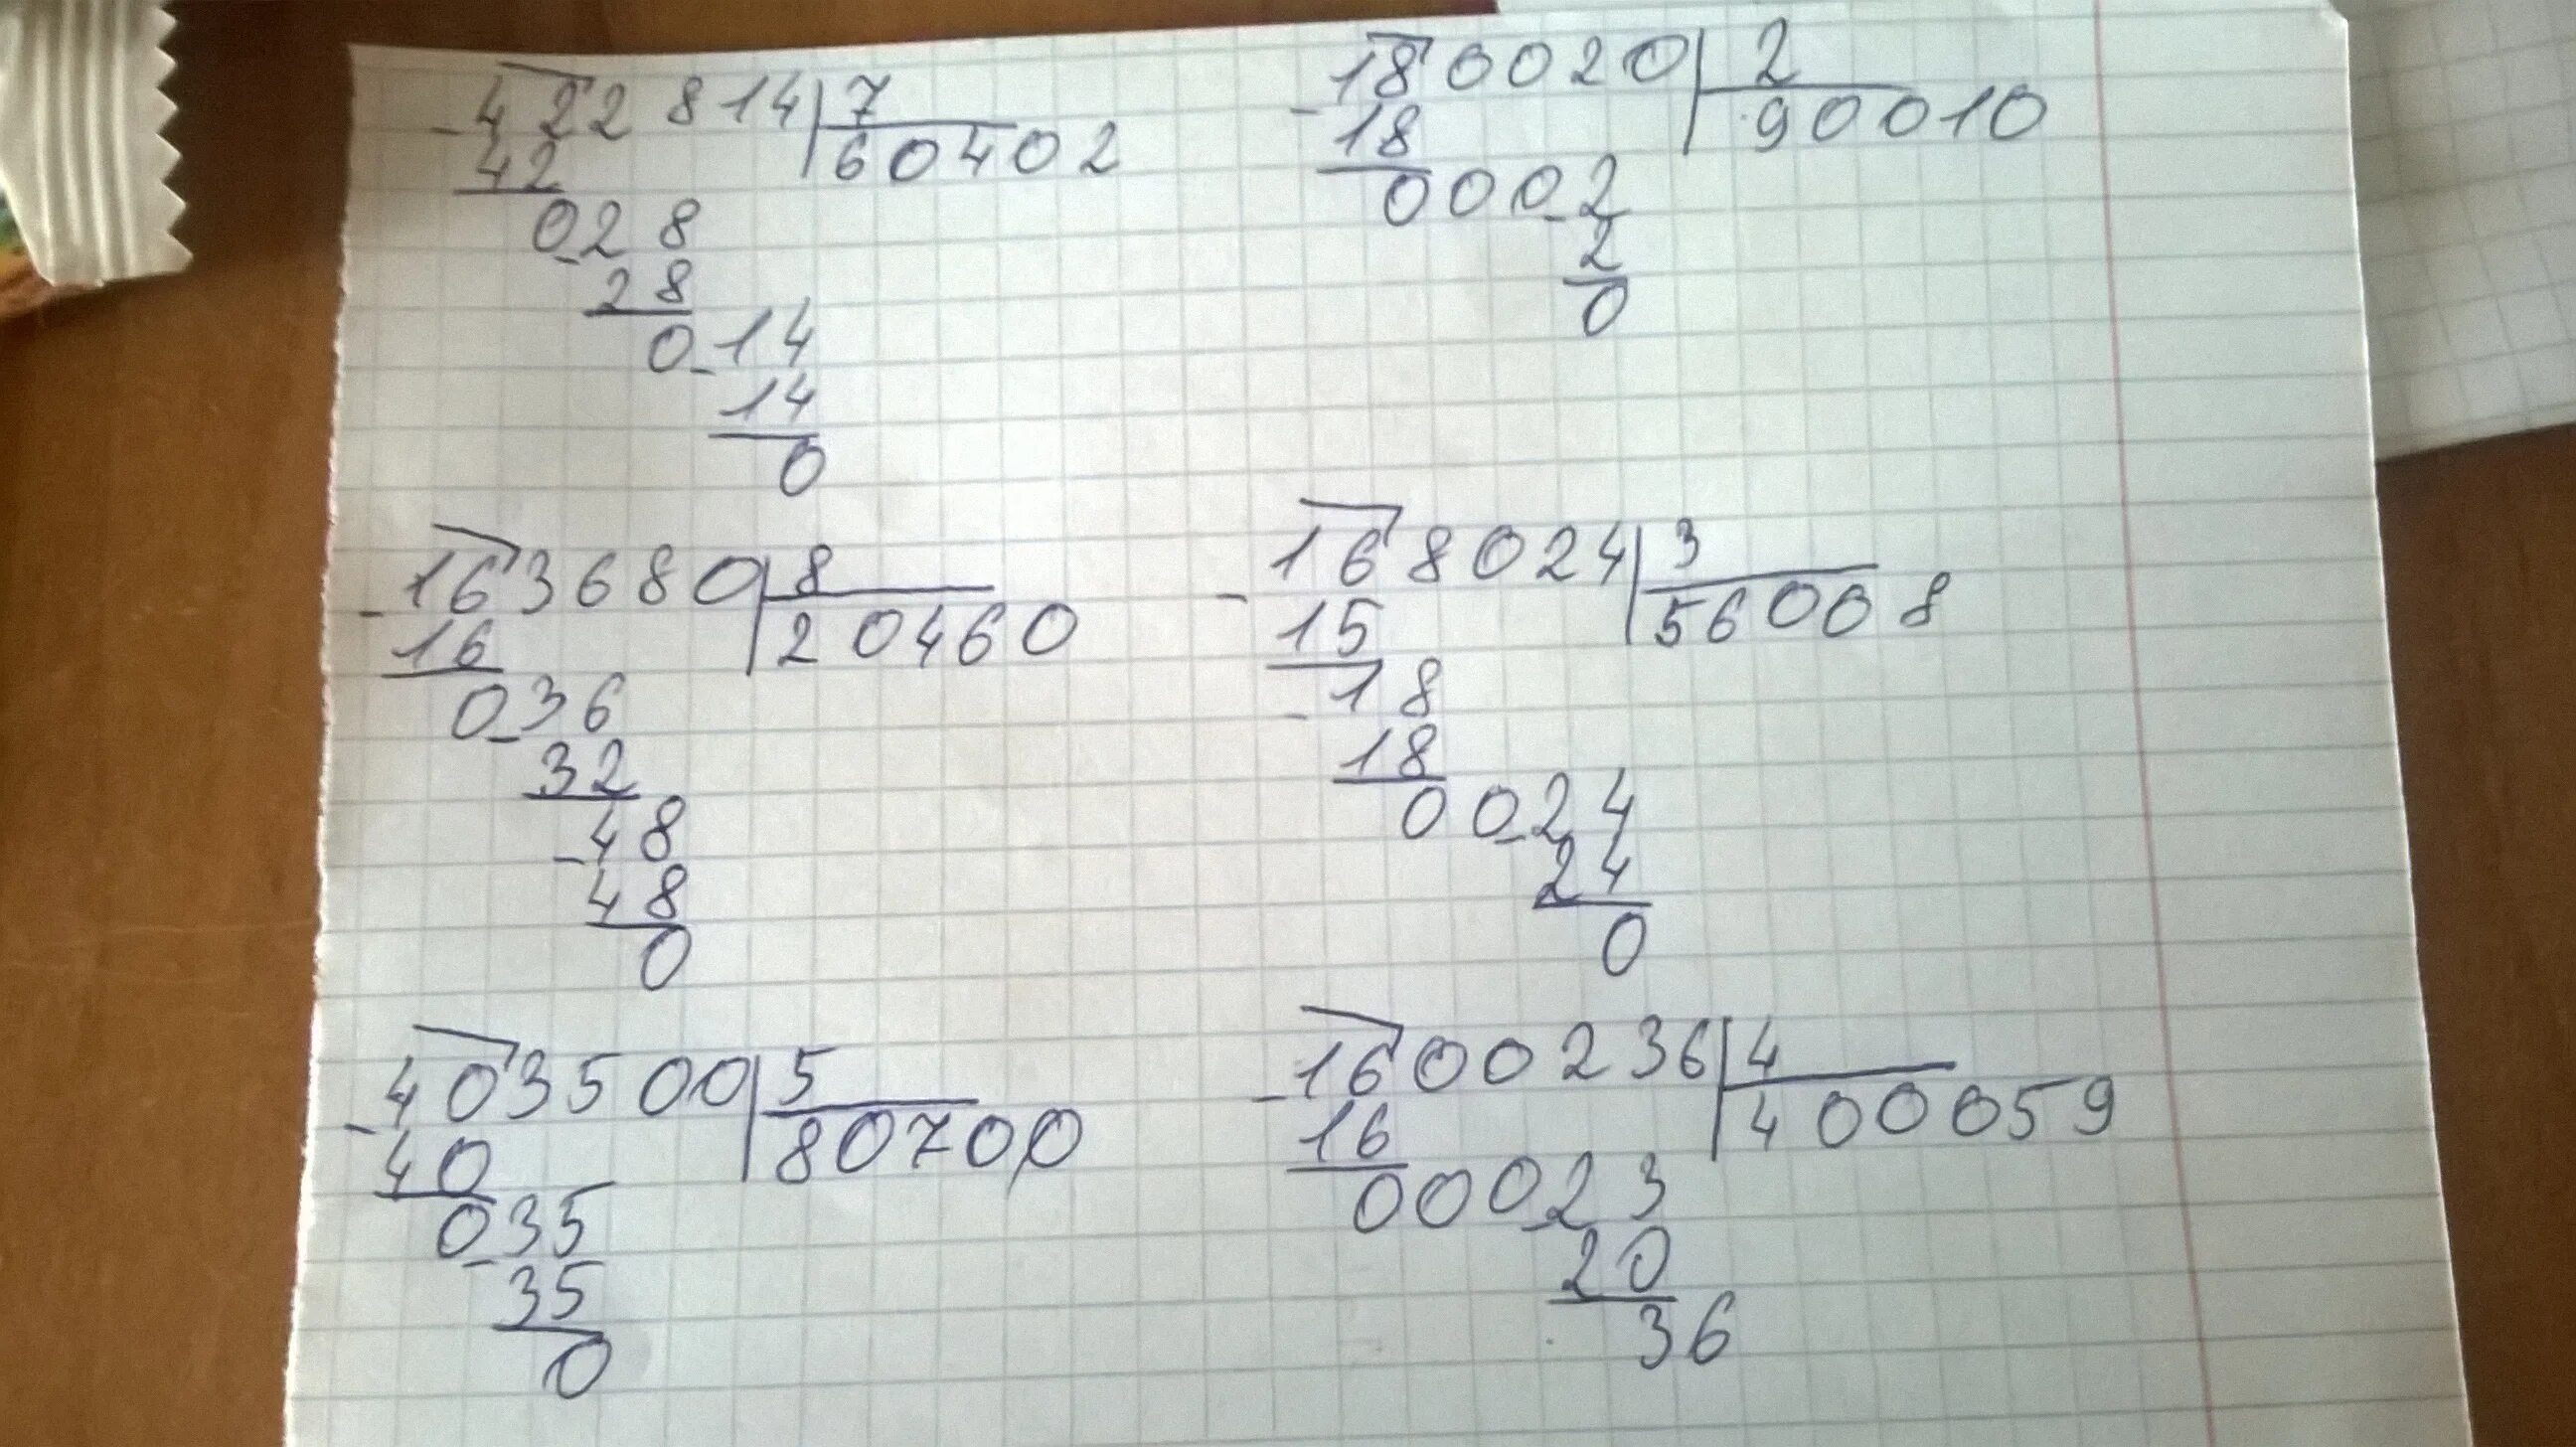 422814 7
- 42 60402
028
- 28
0 14
- 14
0
180020 2
- 18 90010
0002
- 2
0
163680 8
- 16 20460
036
- 32
48
- 48
0
168024 3
- 15 56008
18
- 18
0024
- 24
0
403500 5
- 40 80700
035
- 35
0
1600236 4
- 16 400059
00023
- 20
36